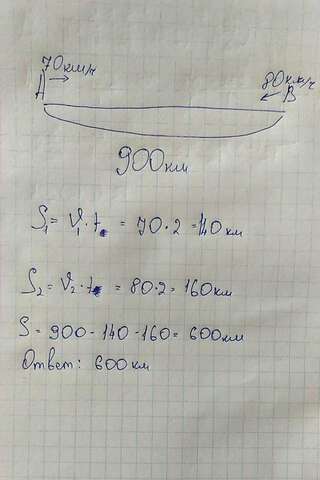 70км/ч
80км/ч
A
B
900км
S₁ = V₁·t = 70·2 = 140 км
S₂ = V₂·t = 80·2 = 160км
S = 900 - 140 - 160 = 600км
Ответ: 600км